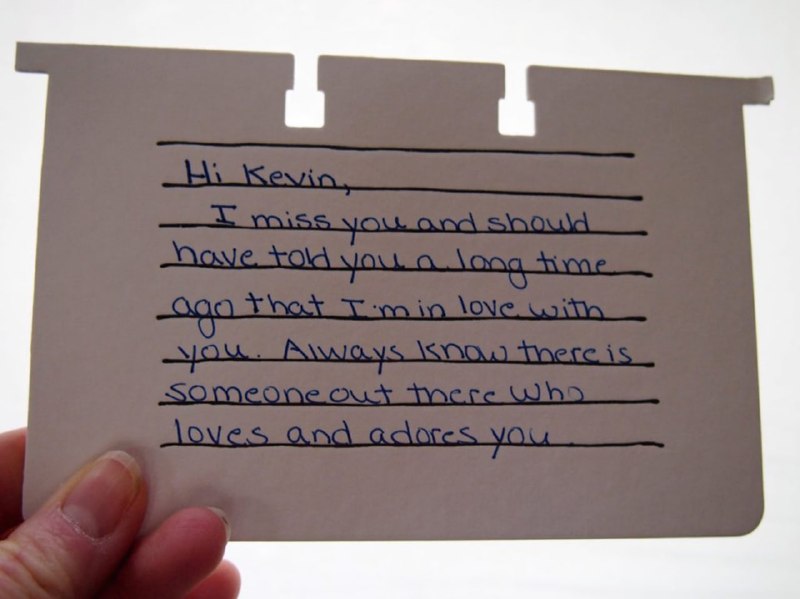 Hi Kevin,
I miss you and should
have told you a long time
ago that I'm in love with
you. Always know there is
someone out there who
loves and adores you.